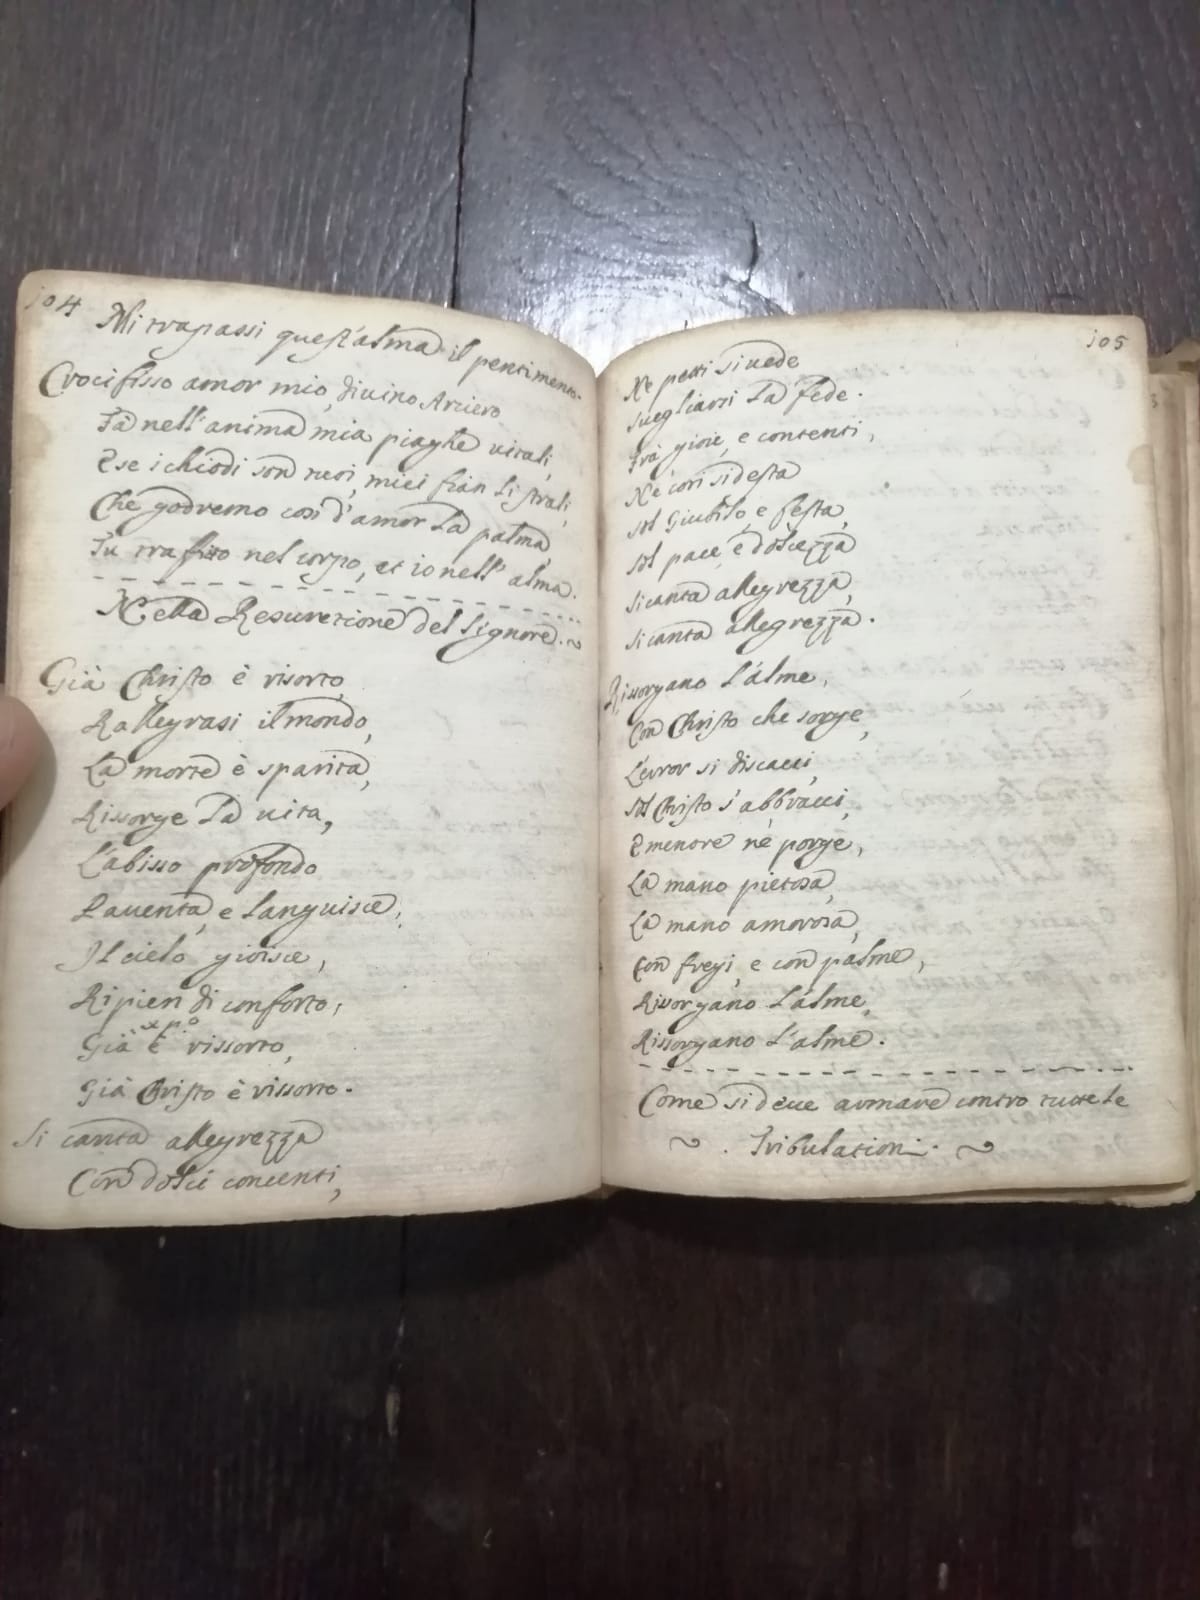 104
Mi trapassi quest'alma il pentimento.
Crocifisso amor mio, divino Arciero
Fà nell'anima mia piaghe vitali,
E se i chiodi son tuoi, miei fian li strali,
Che godremo così d'amor la palma,
Tu trafitto nel corpo, et io nell'alma.
Nella Resuretione del Signore.
Già Christo è risorto,
Rallegrasi il mondo,
La morte è sparita,
Risorge la vita,
L'abisso profondo
Pauenta, e languisce,
Il cielo gioisce,
Ripien di conforto,
Già xp.o è rissorto,
Già Christo è rissorto.
Si canta allegrezza
Con dolci concenti,
105
Ne petti si uede
suegliarsi la fede.
Frà gioie, e contenti,
Ne cori si desta
sol Giubilo, e festa,
sol pace, e dolcezza
si canta allegrezza,
si canta allegrezza.
Rissorgano l'alme,
Con Christo che sorge,
L'error si discacci,
sol Christo s'abbracci,
E menore ne porge,
La mano pietosa,
La mano amorosa,
Con fregi, e con palme,
Rissorgano l'alme,
Rissorgano l'alme.
Come si deue armare contro tutte le
Tribulationi.